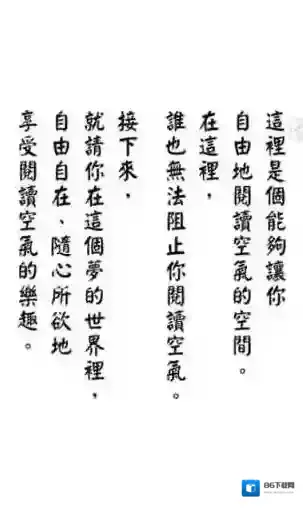 這裡是個能夠讓你
自由地閱讀空氣的空間。
在這裡，
誰也無法阻止你閱讀空氣。
接下來，
就請你在這個夢的世界裡，
自由自在、隨心所欲地
享受閱讀空氣的樂趣。
86下载网